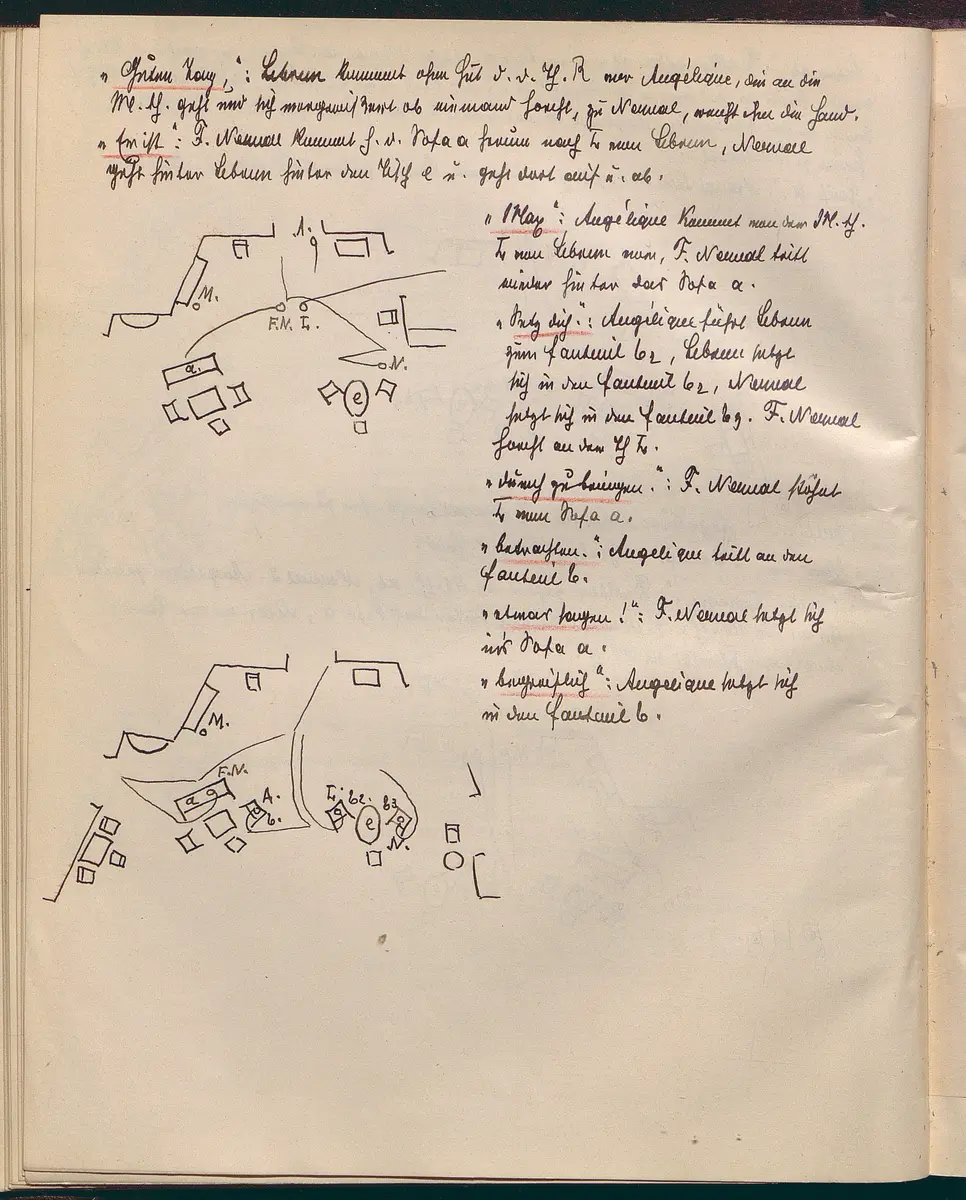 „Guten Tag,“: Lebrun kommt ohne Hut d. d. Th. R vor Angélique, die an die
M. th. geht und sich vergewissert ob niemand horcht, zu Nerval, reicht ihm die Hand.
„Er ist“: F. Nerval kommt h. d. Sofa a herum nach L von Lebrun, Nerval
geht hinter Lebrun hinter den Tisch e u. geht dort auf u. ab.
„Max“: Angélique kommt von der M. th.
L von Lebrun vor, F. Nerval tritt
wieder hinter das Sofa a.
„Setz dich.“: Angélique führt Lebrun
zum Fauteuil b2, Lebrun setzt
sich in den Fauteuil b2, Nerval
setzt sich in den Fauteuil b3. F. Nerval
horcht an der Th L.
„durch zu bringen.“: F. Nerval
L vom Sofa a.
„betrachten.“: Angelique tritt an den
Fauteuil b.
„etwas sagen!“: F. Nerval setzt sich
in's Sofa a.
„begreiflich“: Angelique setzt sich
in den Fauteuil b.
A.
M.
F.N. L.
N.
a.
e
M.
F.N.
a
A.
b.
L. b2. b3
e
N.